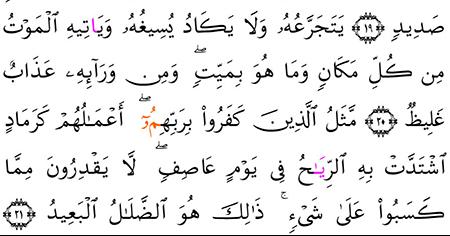 صَدِيدٖ ١٩ يَتَجَرَّعُهُۥ وَلَا يَكَادُ يُسِيغُهُۥ وَيَاتِيهِ اِ۬لْمَوْتُ
مِن كُلِّ مَكَانٖ وَمَا هُوَ بِمَيِّتٖۖ وَمِنْ وَرَآئِهِۦ عَذَابٌ
غَلِيظٞ ٢٠ مَّثَلُ اُ۬لَّذِينَ كَفَرُواْ بِرَبِّهِمُۥٓۖ أَعْمَٰلُهُمْ كَرَمَادٍ
اِ۪شْتَدَّتْ بِهِ اِ۬لرِّيَٰحُ فِي يَوْمٍ عَاصِفٖۖ لَّا يَقْدِرُونَ مِمَّا
كَسَبُواْ عَلَىٰ شَيْءٖۚ ذَٰلِكَ هُوَ اَ۬لضَّلَٰلُ اُ۬لْبَعِيدُ ٢١